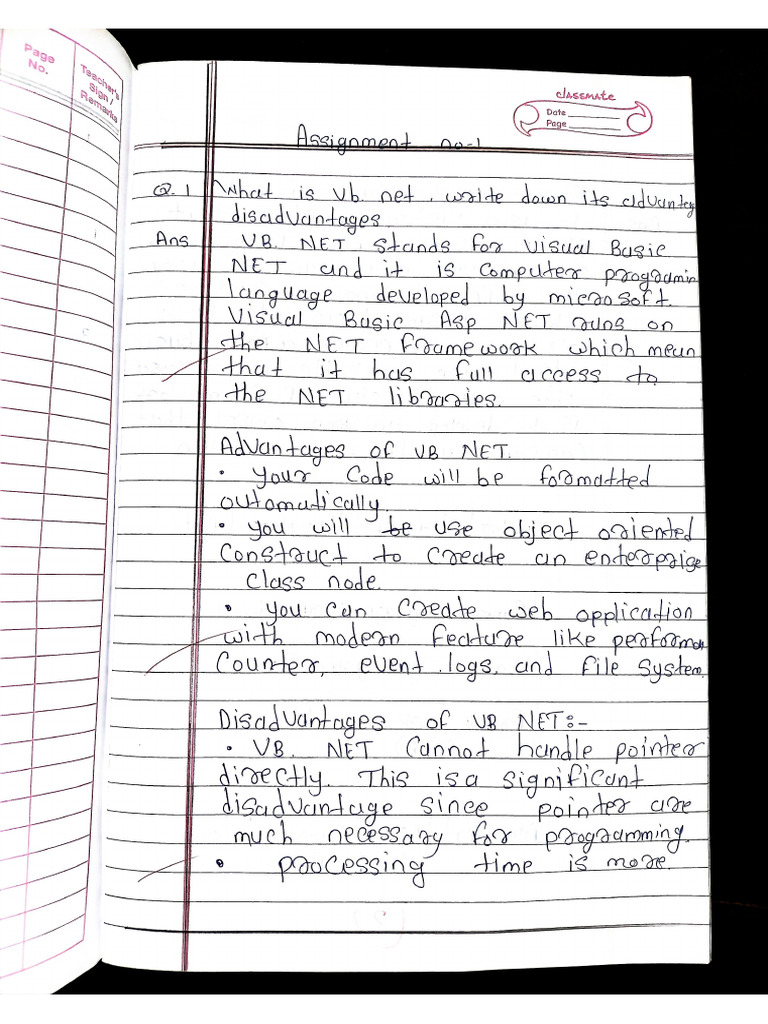 Page No.
Teacher's Sign / Remarks
classmate
Date
Page
Assignment no-1
Q.1 What is vb. net. write down its advantag
disadvantages.
Ans VB. NET stands for Visual Basic
NET and it is computer programin
language developed by microsoft.
Visual Basic Asp NET runs on
the NET framework which mean
that it has full access to
the NET libraries.
Advantages of VB NET.
• your code will be formatted
automatically.
• you will be use object oriented
construct to create an enterprise
class node.
• you can create web application
with modern feature like performan
counter, event logs, and file system.
Disadvantages of VB NET:-
• VB. NET cannot handle pointer
directly. This is a significant
disadvantage since pointer are
much necessary for programming.
• processing time is more.